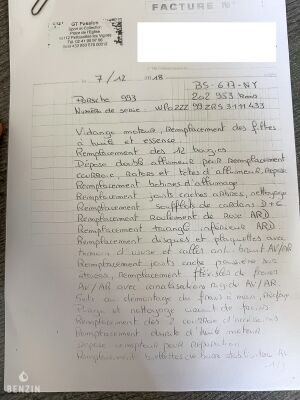 FACTURE N°
GT Passion
Place de l'Eglise
7/12 18
BS-617-NY
Porsche 993
202 953 kms
Numéro de série: WPOZZZ 99ZRS 311433
Vidange moteur, Remplacement des filtres
à huile et essence
Remplacement des 12 bougies
Dépose double allumeur pour remplacement
courroie, Rotors et têtes d'allumeur, repose
Remplacement bobines d'allumage
Remplacement joints caches arbres, nettoyage
Remplacement soufflets de cardans D+G
Remplacement Roulement de roue ARD
Remplacement triangle inférieur ARD
Remplacement disques et plaquettes avec
témoin d'usure et cales anti bruit AV/AR
Remplacement joints cache poussière sur
étriers, Remplacement flexibles de freins
AV/AR avec canalisations rigide AV/AR
Suite au démontage du frein à main, Réglage
Purge et nettoyage circuit de freins
Remplacement des 2 courroie d'accessoires
Remplacement durite d'huile moteur
Dépose compteur pour réparation
Remplacement biellettes de barre stabilisatrice AR
BENZIN